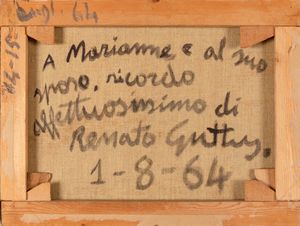 Lugl. 64
A Marianne e al suo
sposo, ricordo
affettuosissimo di
Renato Guttuso.
1-8-64